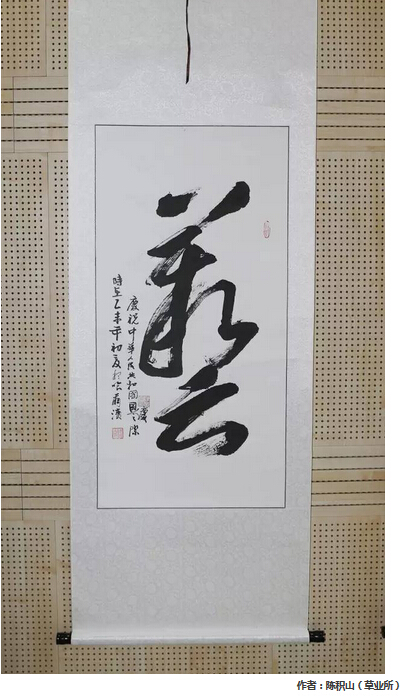 藝
慶祝中華人民共和國
時在乙未年初夏於哈爾濱
作者：陈积山（草业所）